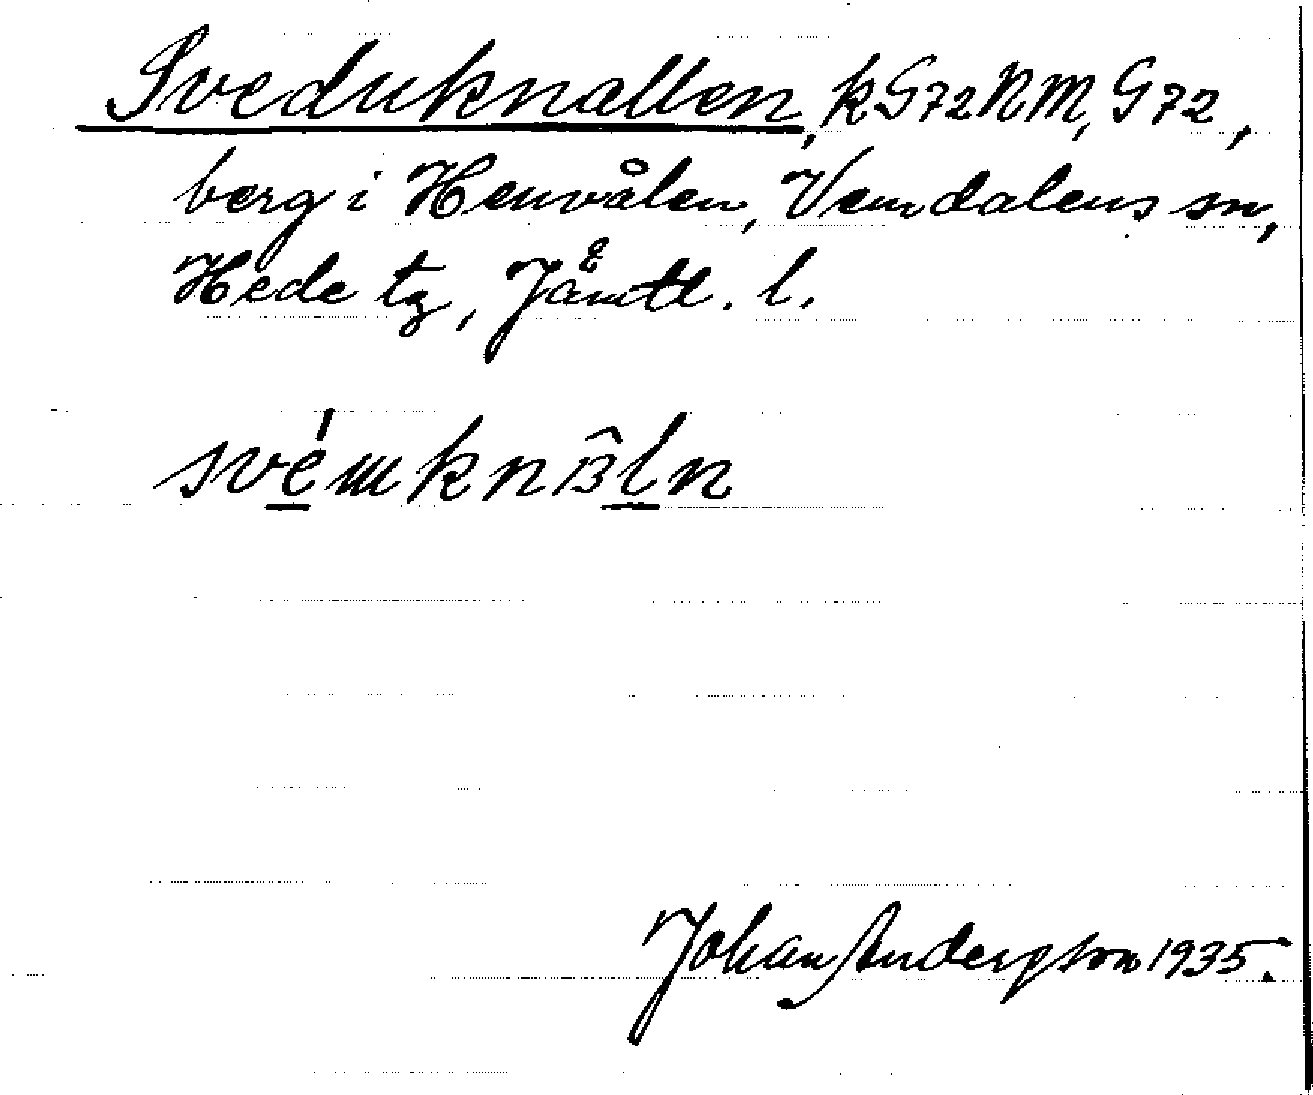 Sveduknallen, k G72NM, G72,
berg i Henvålen, Vemdalens sn,
Hede tg, Jämtl. l.
Johan Andersson 1935.